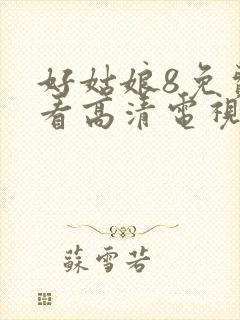 好姑娘8免
看高清電視
蘇雪若